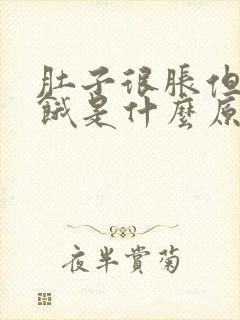 肚子很脹但
餓是什麼原
夜半賞菊